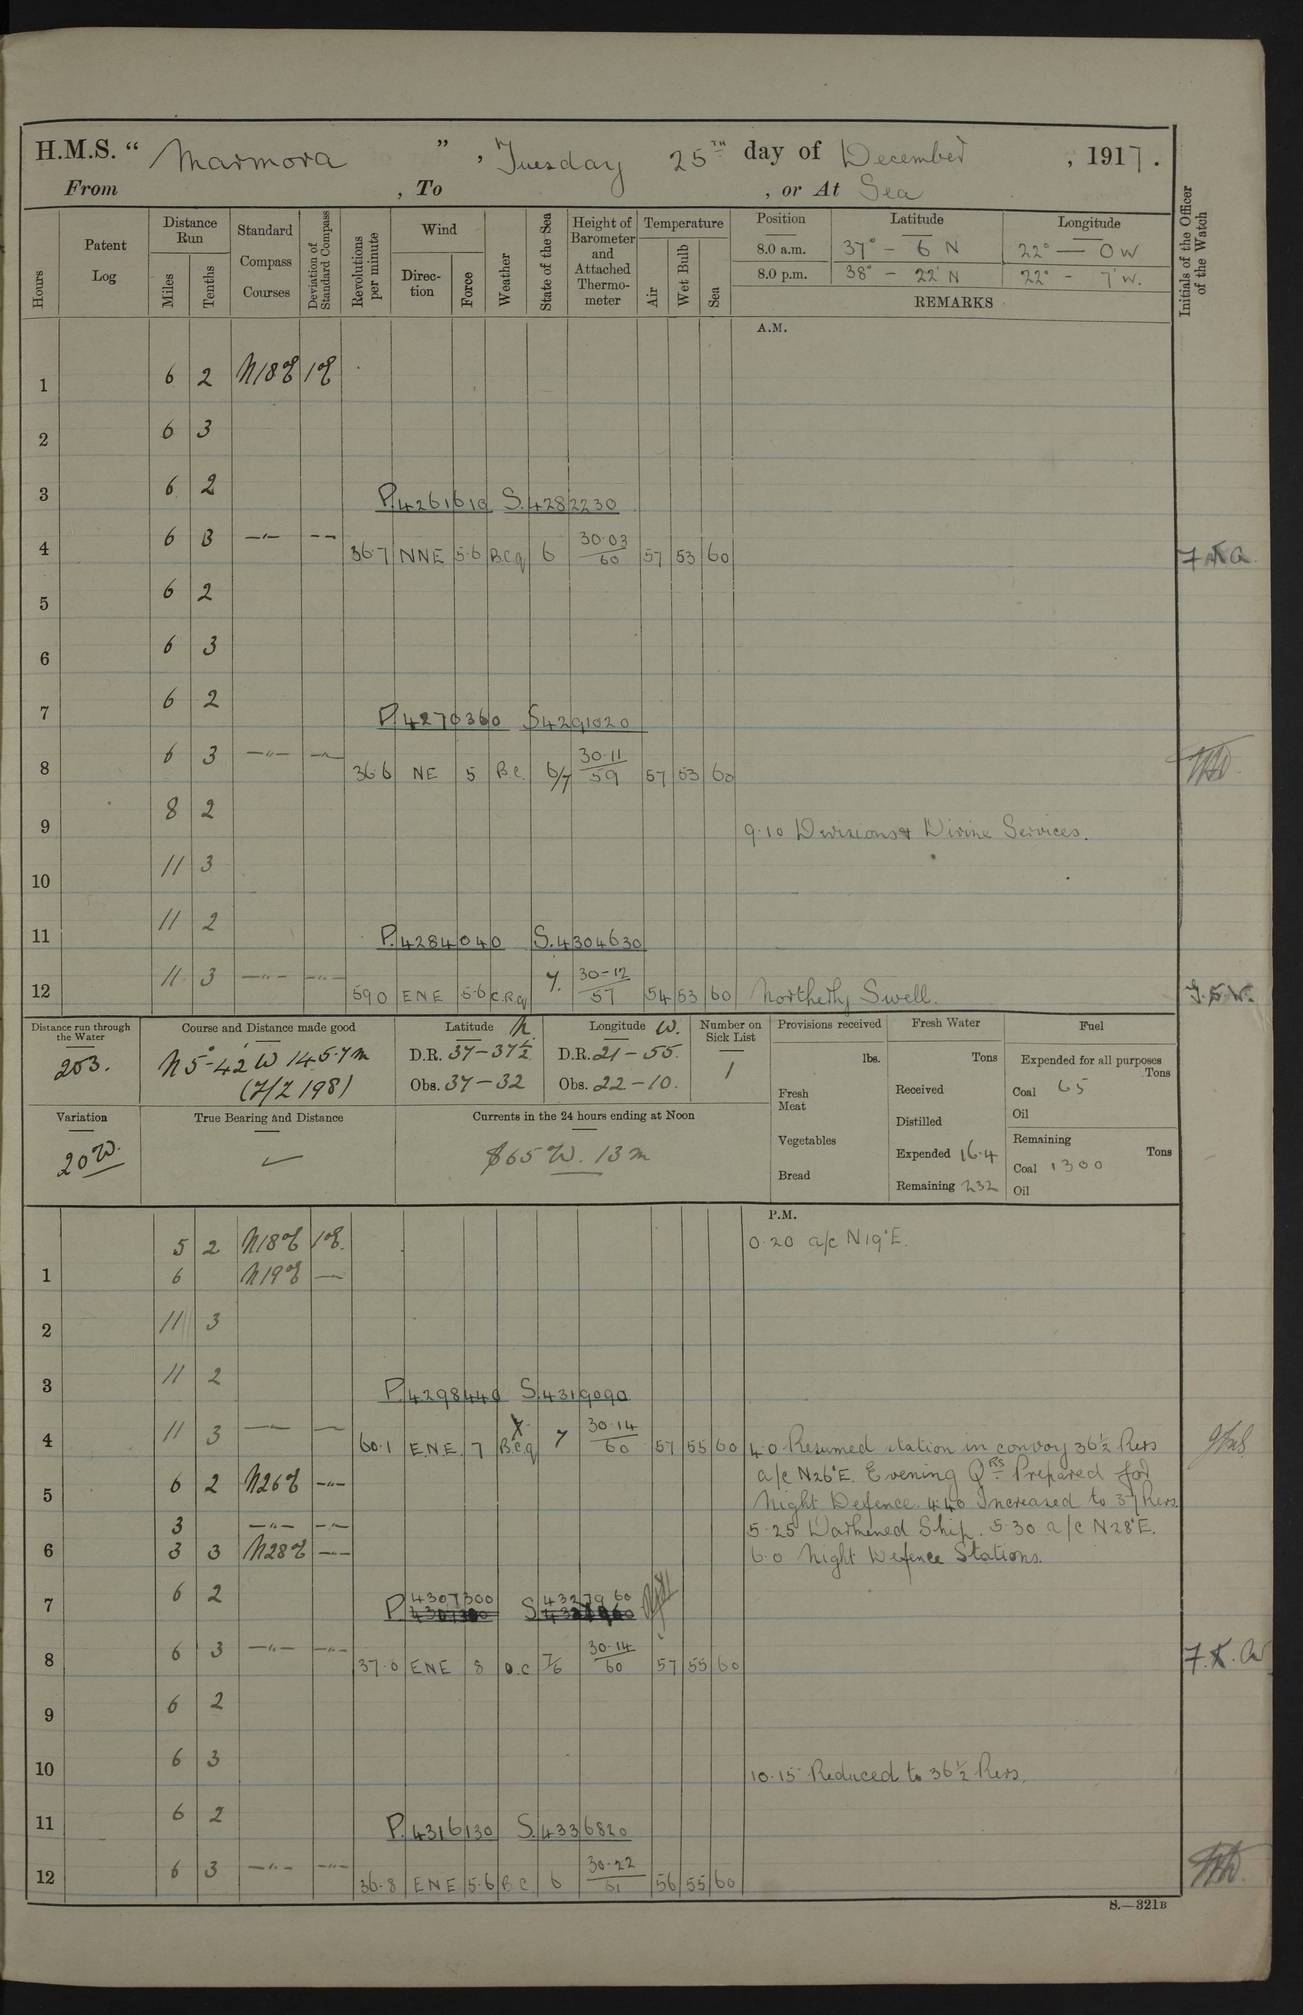 H.M.S. “ Marmora ” , Tuesday 25TH day of December , 1917.
From , To , or At Sea
Hours
Patent Log
Distance Run
Miles
Tenths
Standard Compass Courses
Deviation of Standard Compass
Revolutions per minute
Wind
Direc-tion
Force
Weather
State of the Sea
Height of Barometer and Attached Thermo-meter
Temperature
Air
Wet Bulb
Sea
Position Latitude Longitude
8.0 a.m. 37° - 6 N 22° — 0 W
8.0 p.m. 38° - 22' N 22° - 7' W.
REMARKS
Initials of the Officer of the Watch
A.M.
1 6 2 N18E 1E
2 6 3
3 6 2
P.4261610 S.4282230
4 6 3 —"— -- 36.7 NNE 5.6 B.C.q 6 30.03/60 57 53 60
5 6 2
6 6 3
7 6 2
P.4270360 S4291020
8 6 3 —"— — 36.6 NE 5 B.C. 6/7 30.11/59 57 53 60
9 8 2
9.10 Divisions & Divine Services.
10 11 3
11 11 2
P.4284040 S.4304630
12 11 3 —"— —"— 59.0 ENE 5.6 C.R.q 7. 30-12/57 54 53 60 Northerly Swell. J.E.W.
Distance run through the Water
203.
Course and Distance made good
N5°-42 W 145.7m
(7/Z 198)
Latitude N.
D.R. 37-37½
Obs. 37-32
Longitude W.
D.R. 21-55.
Obs. 22-10.
Number on Sick List
1
Provisions received
lbs.
Fresh Meat
Vegetables
Bread
Fresh Water
Tons
Received
Distilled
Expended 16.4
Remaining 232
Fuel
Expended for all purposes
Tons
Coal 65
Oil
Remaining
Tons
Coal 1300
Oil
Variation
20 W.
True Bearing and Distance
Currents in the 24 hours ending at Noon
S65 W. 13 m
P.M.
5 2 N18E 1E. 0.20 a/c N19°E.
1 6 N19E —
2 11 3
3 11 2
P.4298440 S.4319090
4 11 3 —"— — 60.1 E.N.E. 7 B.C.q 7 30.14/60 57 55 60 4.0 Resumed station in convoy 36½ Revs
a/c N26°E. Evening QRS Prepared for
5 6 2 N26E —"— Night Defence. 4.40 Increased to 37 Revs.
3 —"— —"— 5.25 Darkened Ship. 5.30 a/c N28°E.
6 3 3 N28E —"— 6.0 Night Defence Stations.
7 6 2
P. 4307300 S 4327960
8 6 3 —"— —"— 37.0 ENE 8 O.C 7/6 30.14/60 57 55 60
9 6 2
10 6 3
10.15 Reduced to 36½ Revs.
11 6 2
P.4316130 S.4336820
12 6 3 —"— —"— 36.8 ENE 5.6 B.C 6 30.22/61 56 55 60
S.—321B